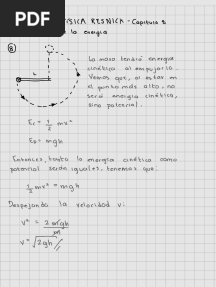 PDF
FÍSICA RESNICK - Capítulo 8
la energía
8
L
La masa tendrá energía
cinética al empujarla.
Vemos que, al estar en
el punto más alto, no
será energía cinética,
sino potencial.
Ec = 1/2 mv²
Ep = mgh
Entonces, tanto la energía cinética como
potencial serán iguales, tenemos que:
1/2 mv² = mgh
Despejando la velocidad v:
v² = 2mgh/m
v = √2gh //